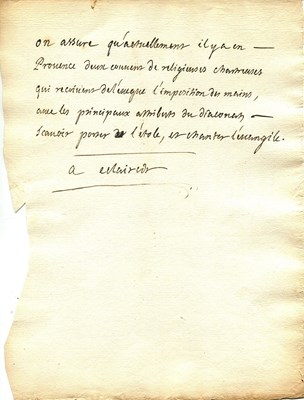 on assure qu'actuellement il y a en —
Provence deux couvent de religieuses chartreuses
qui recoivent de l'eveque l'imposition des mains,
avec les principaux attributs du diaconat, —
scavoir porter l'étole, et chanter l'evangile.
a eclaircir